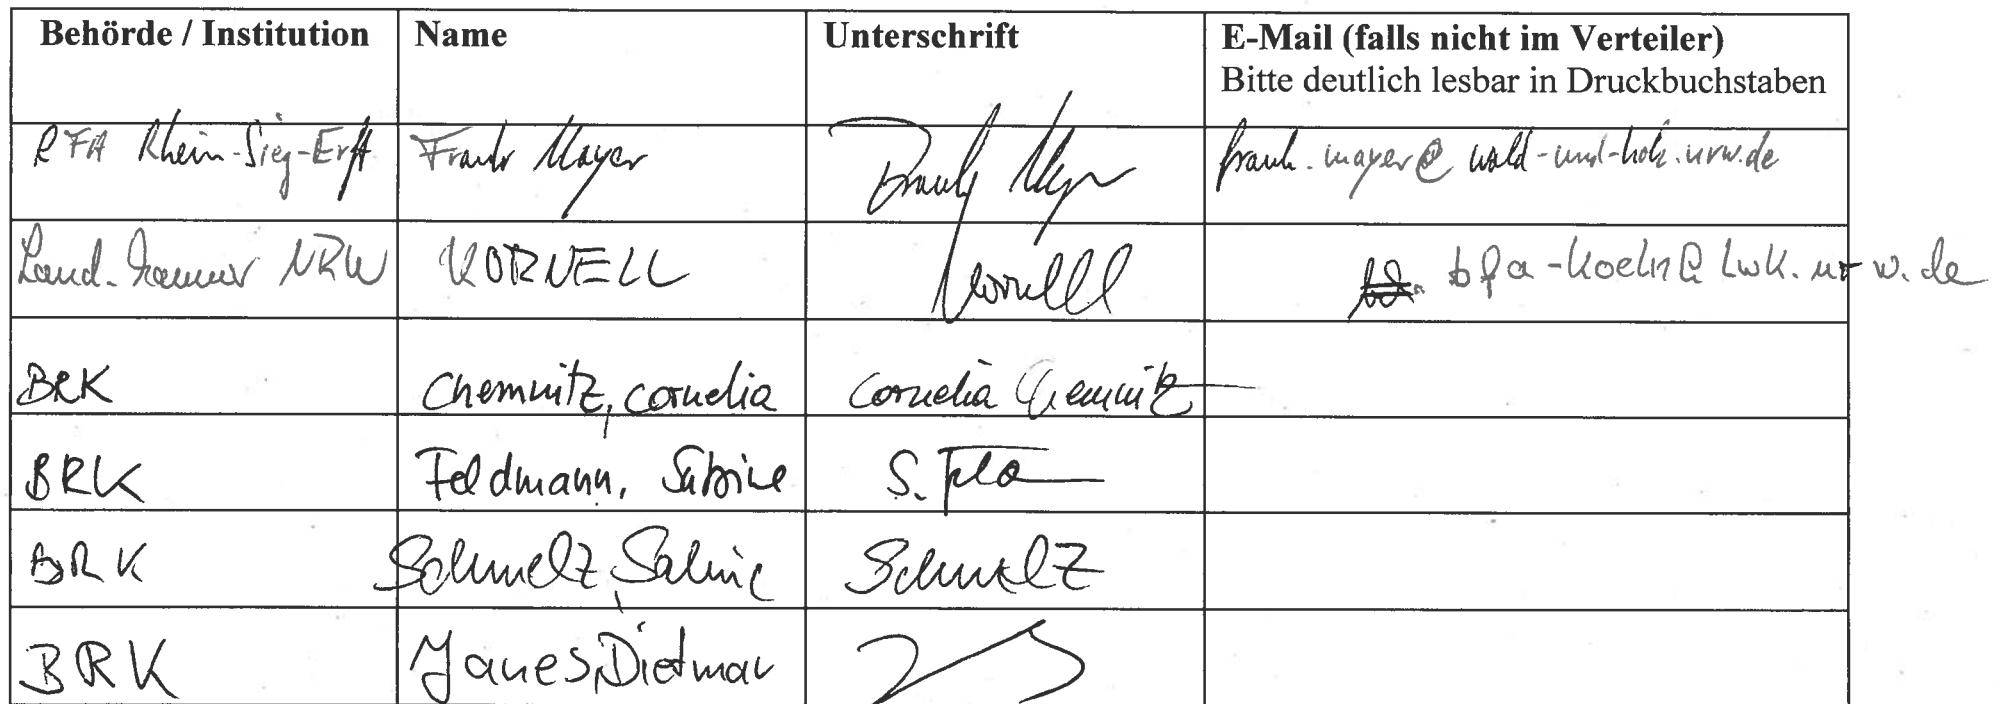 Behörde / Institution Name Unterschrift E-Mail (falls nicht im Verteiler)
Bitte deutlich lesbar in Druckbuchstaben
RFA Rhein-Sieg-Erft Frank Mayer Frank Mayer frank.mayer@wald-und-holz.nrw.de
Land. kammer NRW KORNELL Kornell bfa-koeln@lwk.nrw.de
BRK Chemnitz, Cornelia Cornelia Chemnitz
BRK Feldmann, Sabine S.
BRK Schmelz, Sabine Schmelz
BRK Janes, Dietmar